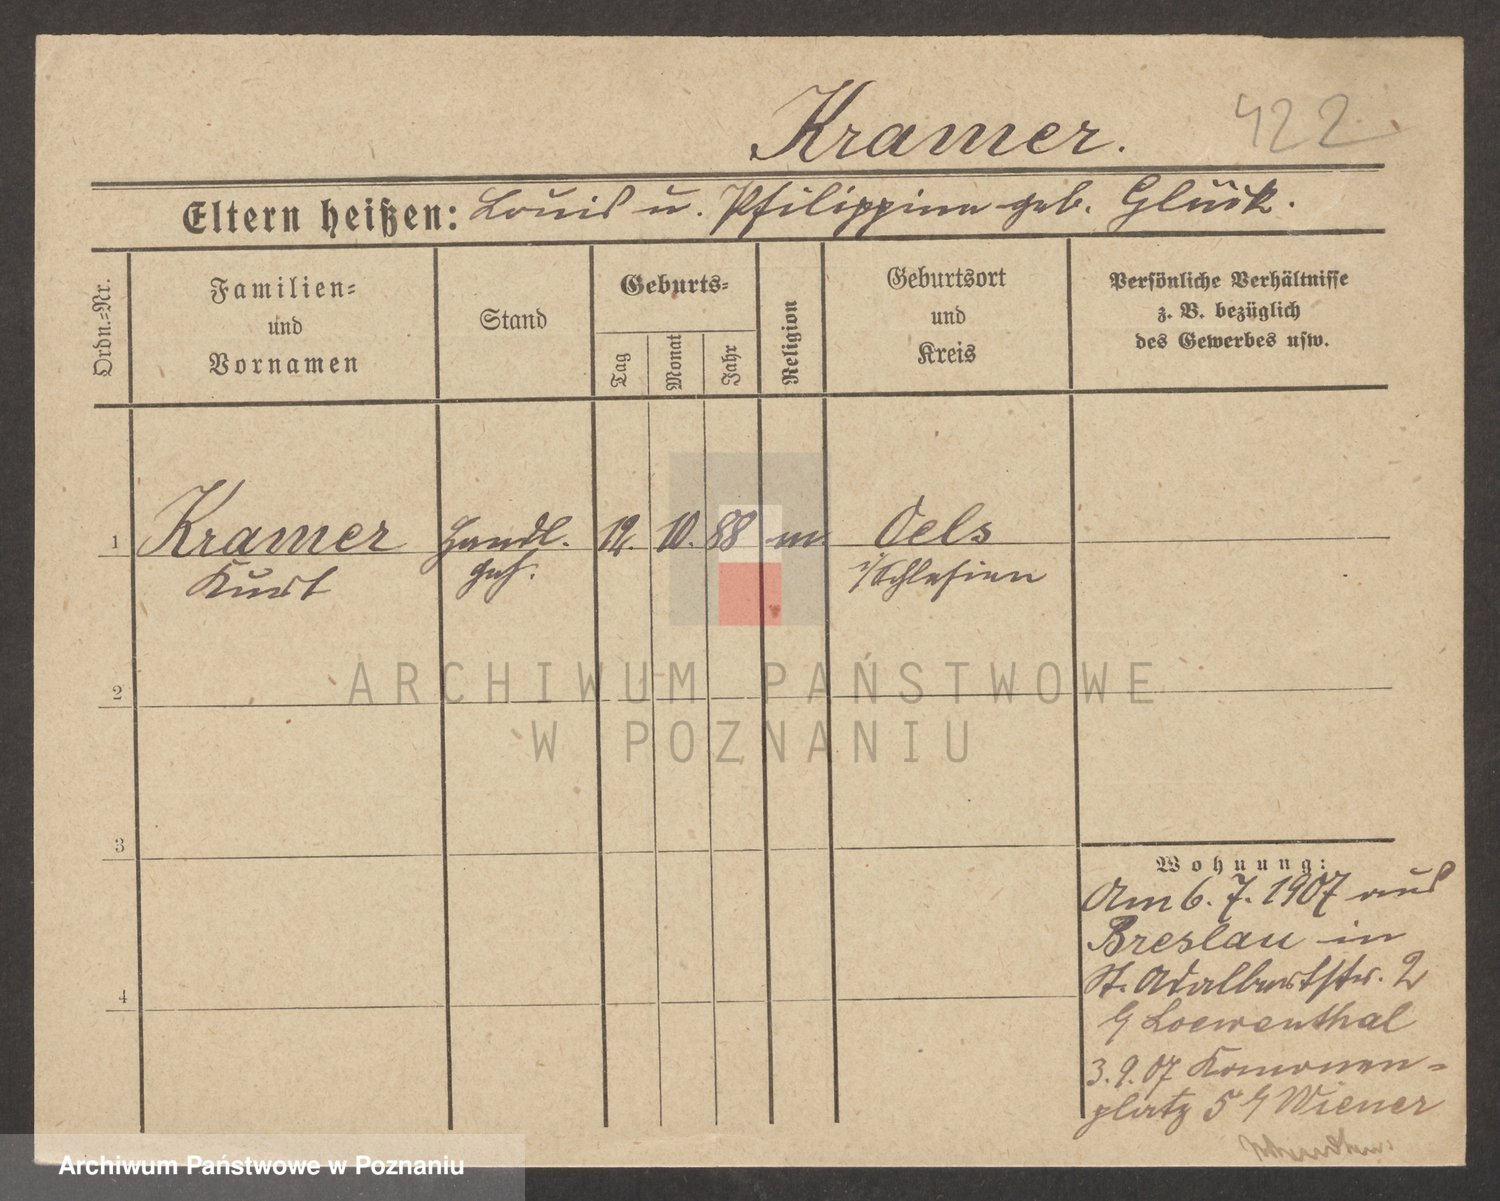 Kramer.
422
Eltern heißen: Louis u. Philippine geb. Glück.
Ordn.-Nr.
Familien-
und
Vornamen
Stand
Geburts-
Tag
Monat
Jahr
Religion
Geburtsort
und
Kreis
Persönliche Verhältnisse
z. B. bezüglich
des Gewerbes usw.
1 Kramer Handl. 12. 10. 88 m. Oels
Kurt Geh. i/Schlesien
2
3
4
Wohnung:
Am 6. 7. 1907 aus
Breslau in
St. Adalbertstr. 2
b/ Loewenthal
3. 9. 07
platz 5 b/ Wiener
ARCHIWUM PAŃSTWOWE
W POZNANIU
Archiwum Państwowe w Poznaniu